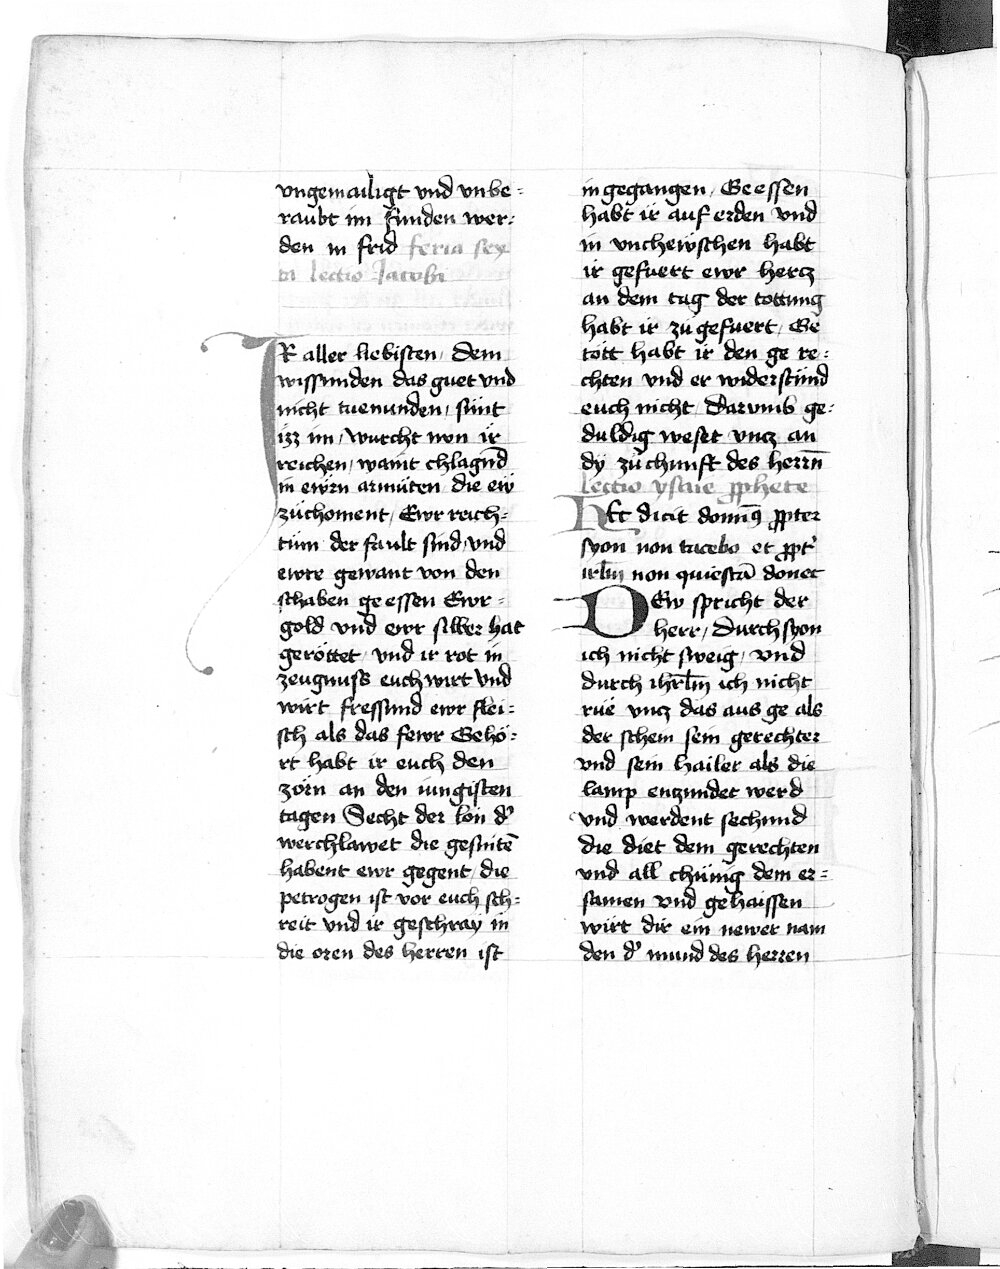 vngemailigt vnd vnbe=
raubt im funden wer=
den in frid feria sex
ta lectio Jacobi
IR aller liebisten / dem
wissunden das guet vnd
nicht tuenunden / sünt
izz im / Wurcht nvn ir
reichen / waint chlagnd
in ewrn armüten die ew
zuchoment / Ewr reich=
tüm der fault sind / vnd
ewre gewant von den
schaben geessen Ewr=
gold vnd ewr silber hat
geröttet / vnd ir rot in
zeugnuss euch wirt vnd
wirt fressund ewr flei=
sch als das fewr Gehö=
rt habt ir euch den
zörn an den iungisten
tagen Secht der lon d'
werchlawet die gesnitē
habent ewr gegent / die
petrogen ist vor euch sch=
reit vnd ir geschray in
die oren des herren ist
in gegangen / Geessen
habt ir auf erden vnd
in vncheẅschen habt
ir gefuert ewr hercz
an dem tag der tottung
habt ir zu gefuert / Ge
tött habt ir den ge re=
chten vnd er widerstünd
euch nicht / Darvmb ge=
duldig weset vncz an
dy zu chunft des herrn̄
lectio ysaie ꝓphete
HEc dicit domin9 ꝓpter
syon non tacebo et ꝓpt'
irl̄m non quiescā donec
DEw spricht der
herr / Durch syon
ich nicht sweig / vnd
durch ihrl̄m ich nicht
rüe vncz das aus ge als
der schein sein gerechter
vnd sein hailer als die
lamp enzundet werd
vnd werdent sechund
die diet dem gerechten
vnd all chünig dem er=
samen vnd gehaissen
wirt dir ein newer nam
den d' mund des herren